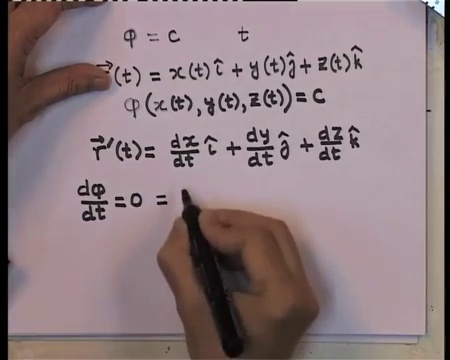 φ = c t
r⃗(t) = x(t) î + y(t) ĵ + z(t) k̂
φ(x(t), y(t), z(t)) = c
r⃗'(t) = dx/dt î + dy/dt ĵ + dz/dt k̂
dφ/dt = 0 =